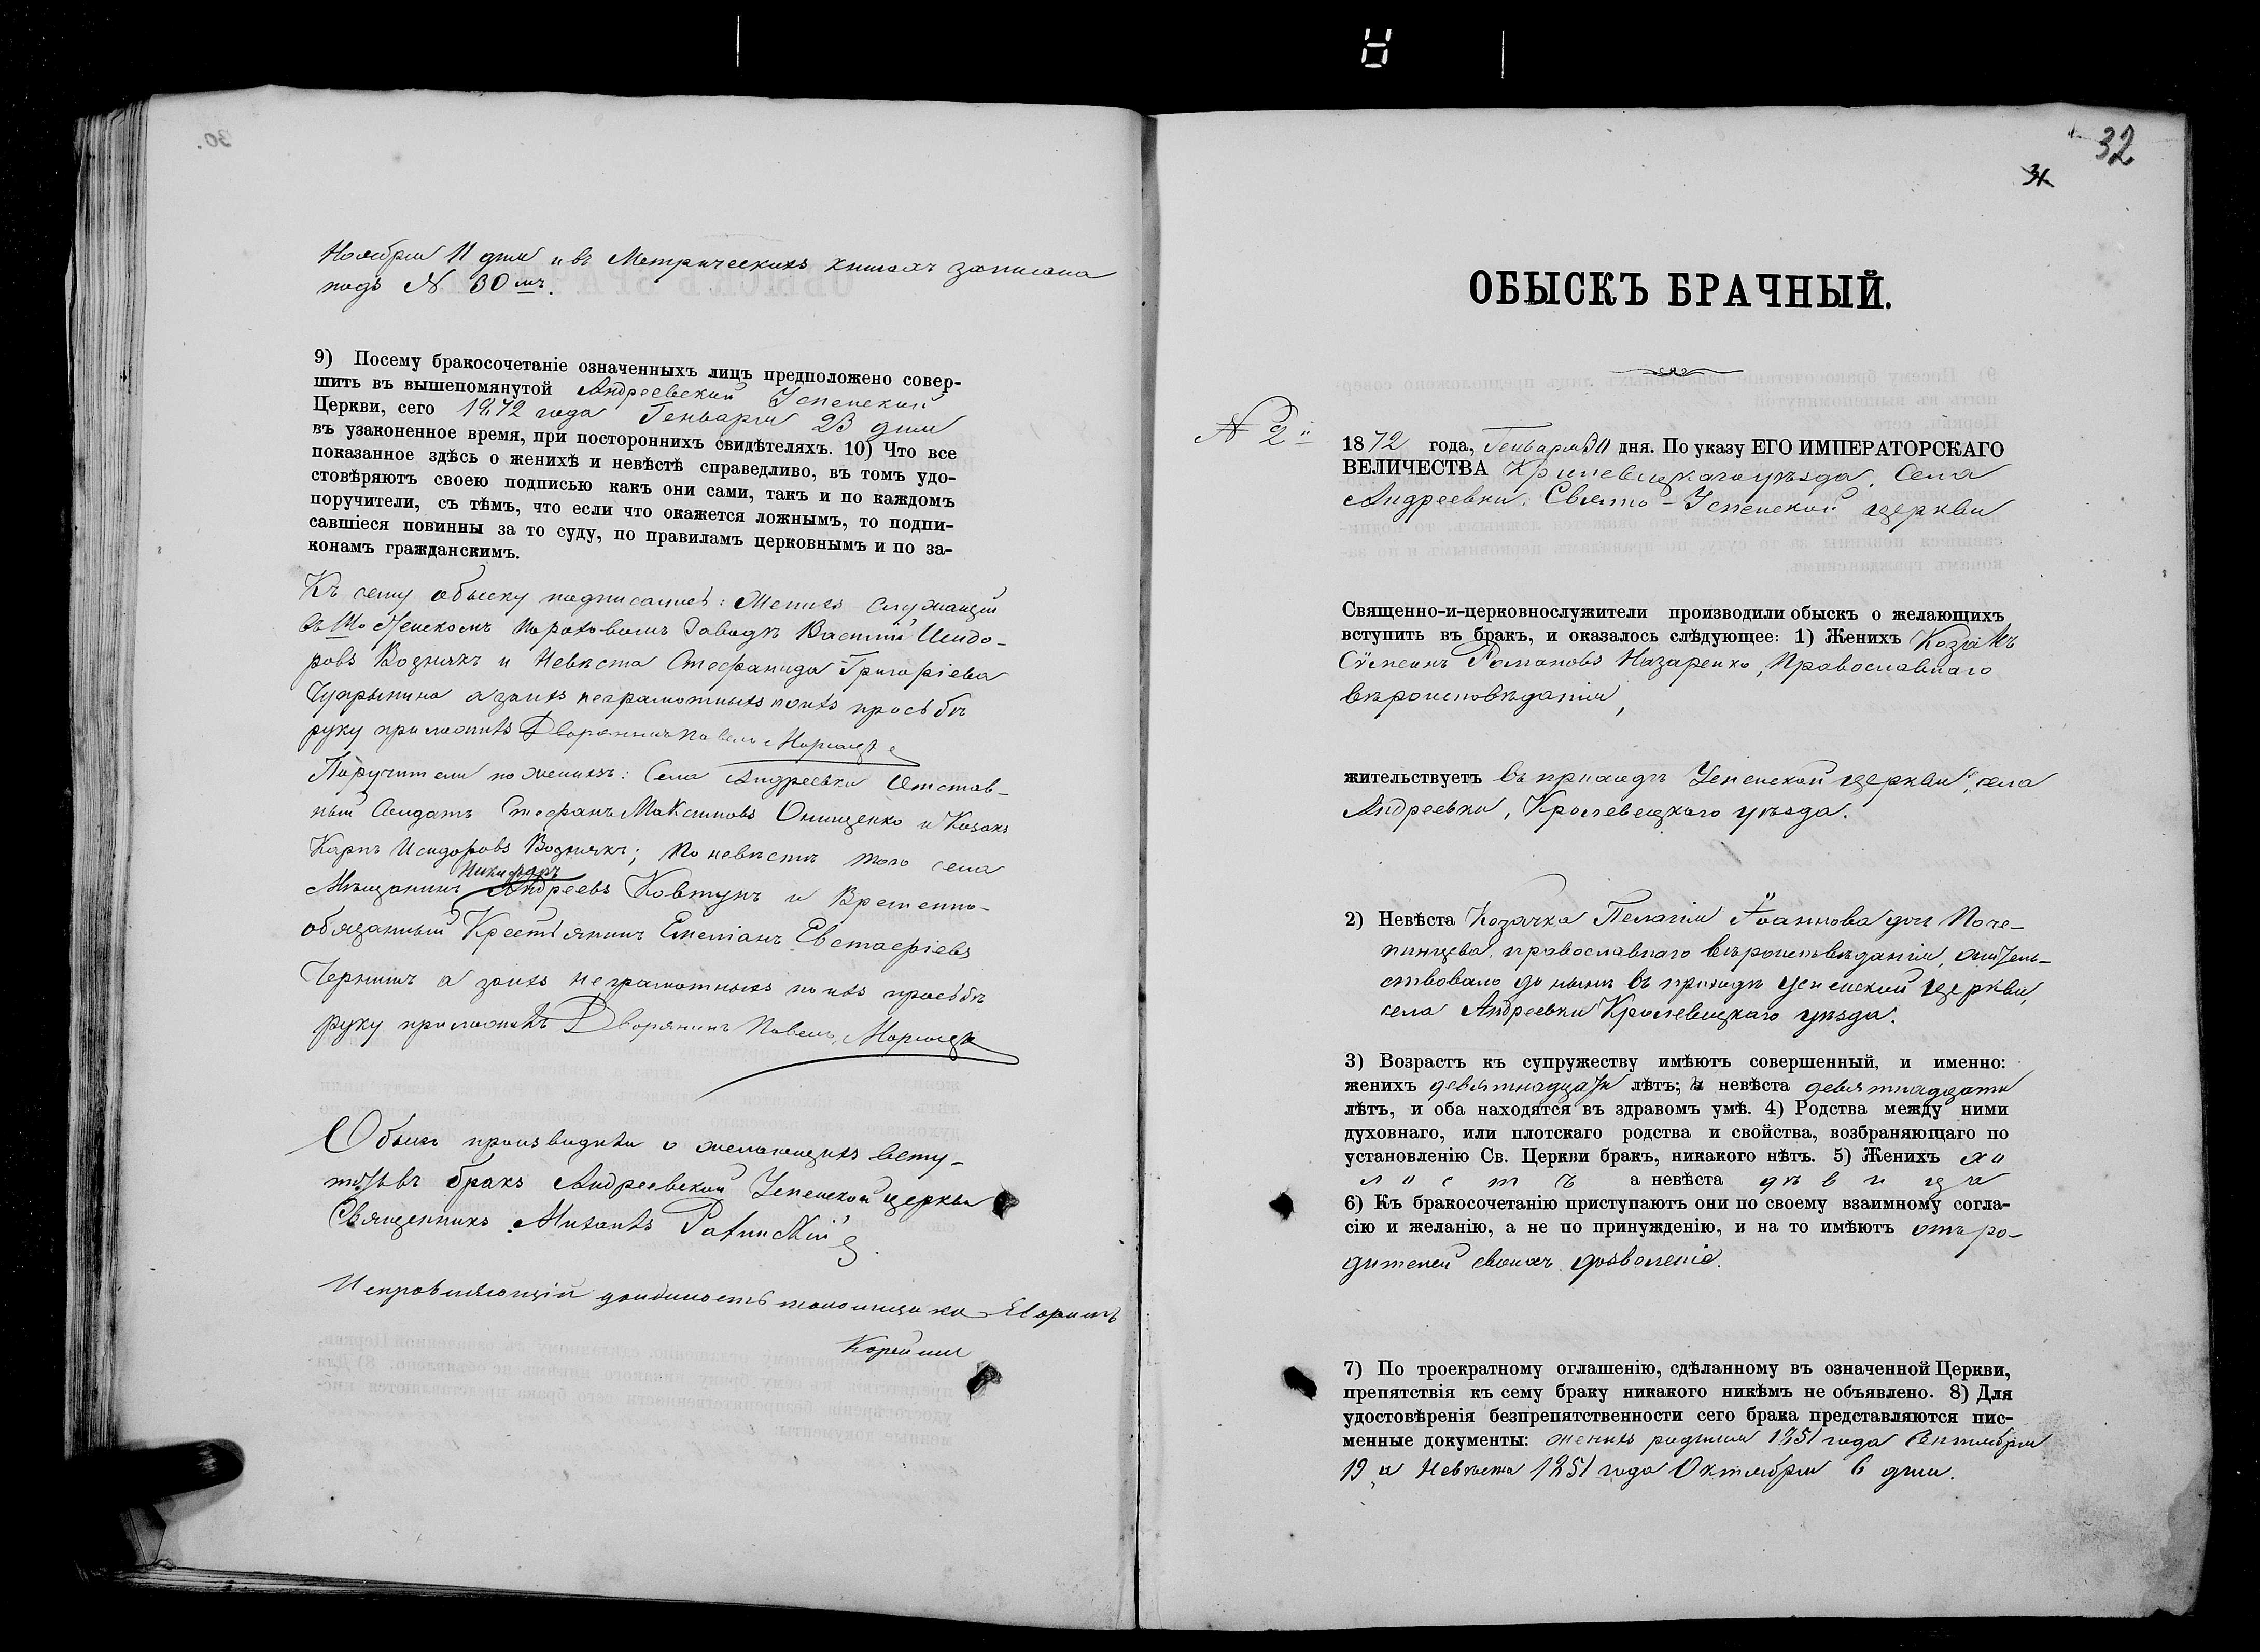 Ноября 11 дня и въ Метрическихъ книгахъ записана
подъ № 30мъ.
9) Посему бракосочетаніе означенныхъ лицъ предположено совер-
шить въ вышепомянутой Андреевской Успенской
Церкви, сего 1872 года Генваря 23 дня
въ узаконенное время, при постороннихъ свидѣтеляхъ. 10) Что все
показанное здѣсь о женихѣ и невѣстѣ справедливо, въ томъ удо-
стовѣряютъ своею подписью какъ они сами, такъ и по каждомъ
поручители, съ тѣмъ, что если что окажется ложнымъ, то подпи-
савшіеся повинны за то суду, по правиламъ церковнымъ и по за-
конамъ гражданскимъ.
Къ сему обыску подписались: Женихъ служащій
въ Шостенскомъ Пороховомъ Заводѣ Василій Исидо-
ровъ Вознякъ и Невѣста Стефанида Григоріева
Чупрынина а за ихъ неграмотныхъ по ихъ просьбѣ
руку приложилъ Дворянинъ Павелъ
Поручители по женихѣ: Села Андреевки Отстав-
ный Солдатъ Стефанъ Максимовъ Онищенко и Козакъ
Карпъ Исидоровъ Вознякъ; По невѣстѣ того села
Никифоръ
Мѣщанинъ Андреевъ Ковтунъ и Временно-
обязанный Крестьянинъ Емеліанъ Евстафіевъ
а за ихъ неграмотныхъ по ихъ просьбѣ
руку приложилъ Дворянинъ Павелъ
Обыскъ производили о желающихъ всту-
пить въ бракъ Андреевской Успенской церкви
Священникъ
Исправляющій должность
32
31
ОБЫСКЪ БРАЧНЫЙ.
№ 2й
1872 года, Генваря 30 дня. По указу ЕГО ИМПЕРАТОРСКАГО
ВЕЛИЧЕСТВА Кролевецкаго уѣзда, Села
Андреевки, Свято-Успенской церкви
Священно-и-церковнослужители производили обыскъ о желающихъ
вступить въ бракъ, и оказалось слѣдующее: 1) Женихъ Козакъ
Сѵмеонъ Романовъ Назаренко, Православнаго
вѣроисповѣданія,
жительствуетъ въ приходѣ Успенской церкви, села
Андреевки, Кролевецкаго уѣзда.
2) Невѣста Козачка Пелагія Іоаннова дочь Поче-
пинцева, православнаго вѣроисповѣданія, житель-
ствовала до нынѣ въ приходѣ Успенской церкви,
села Андреевки Кролевецкаго уѣзда.
3) Возрастъ къ супружеству имѣютъ совершенный, и именно:
женихъ девятнадцати лѣтъ; а невѣста девятнадцати
лѣтъ, и оба находятся въ здравомъ умѣ. 4) Родства между ними
духовнаго, или плотскаго родства и свойства, возбраняющаго по
установленію Св. Церкви бракъ, никакого нѣтъ. 5) Женихъ хо
лостъ а невѣста дѣвица
6) Къ бракосочетанію приступаютъ они по своему взаимному согла-
сію и желанію, а не по принужденію, и на то имѣютъ отъ ро-
дителей своихъ дозволеніе.
7) По троекратному оглашенію, сдѣланному въ означенной Церкви,
препятствія къ сему браку никакого никѣмъ не объявлено. 8) Для
удостовѣренія безпрепятственности сего брака представляются пис-
менные документы: женихъ родился 1851 года Сентября
19, а Невѣста 1851 года Октября 6 дня.